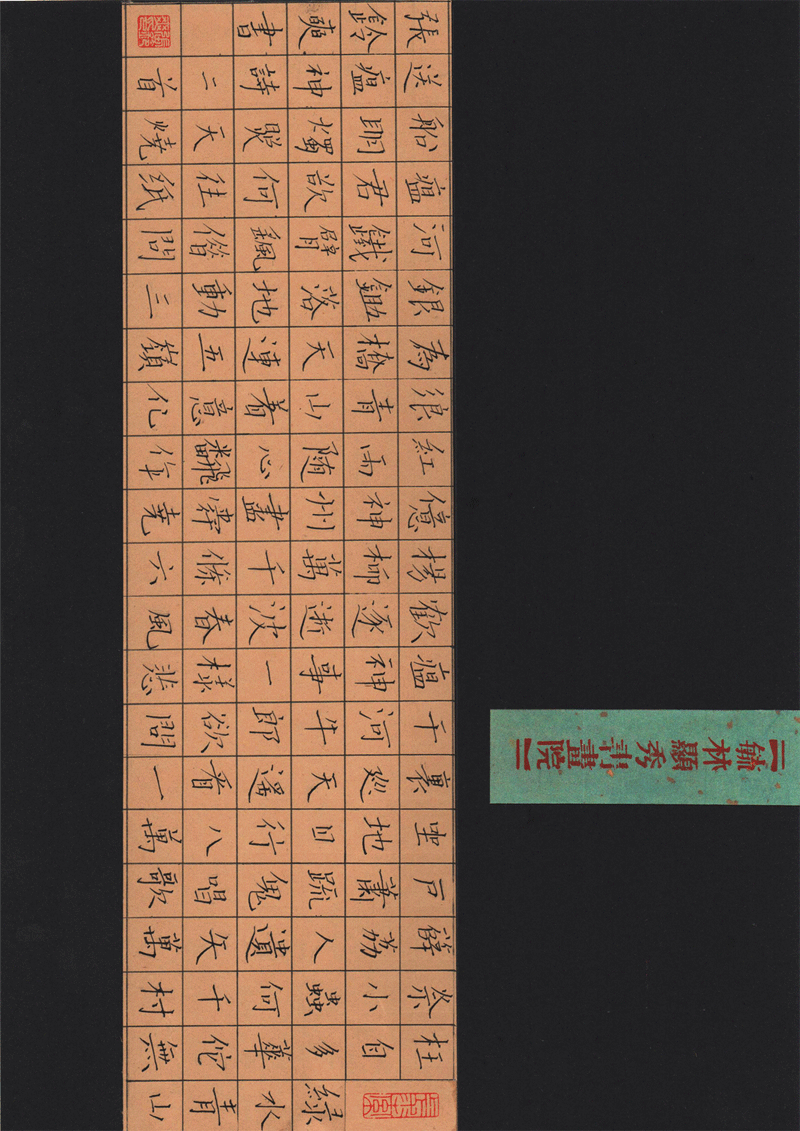 綠水青山
枉自多華佗無
奈小蟲何千村
薜荔人遺矢萬
戶蕭疏鬼唱歌
坐地日行八萬
裏巡天遙看一
千河牛郎欲問
瘟神事一樣悲
歡逐逝波春風
楊柳萬千條六
億神州盡舜堯
紅雨隨心飜作
浪青山着意化
為橋天連五嶺
銀鋤落地動三
河鐵臂颻借問
瘟君欲何往紙
船明燭照天燒
送瘟神詩二首
張鈴奭書
【毓林顯秀书畫院】